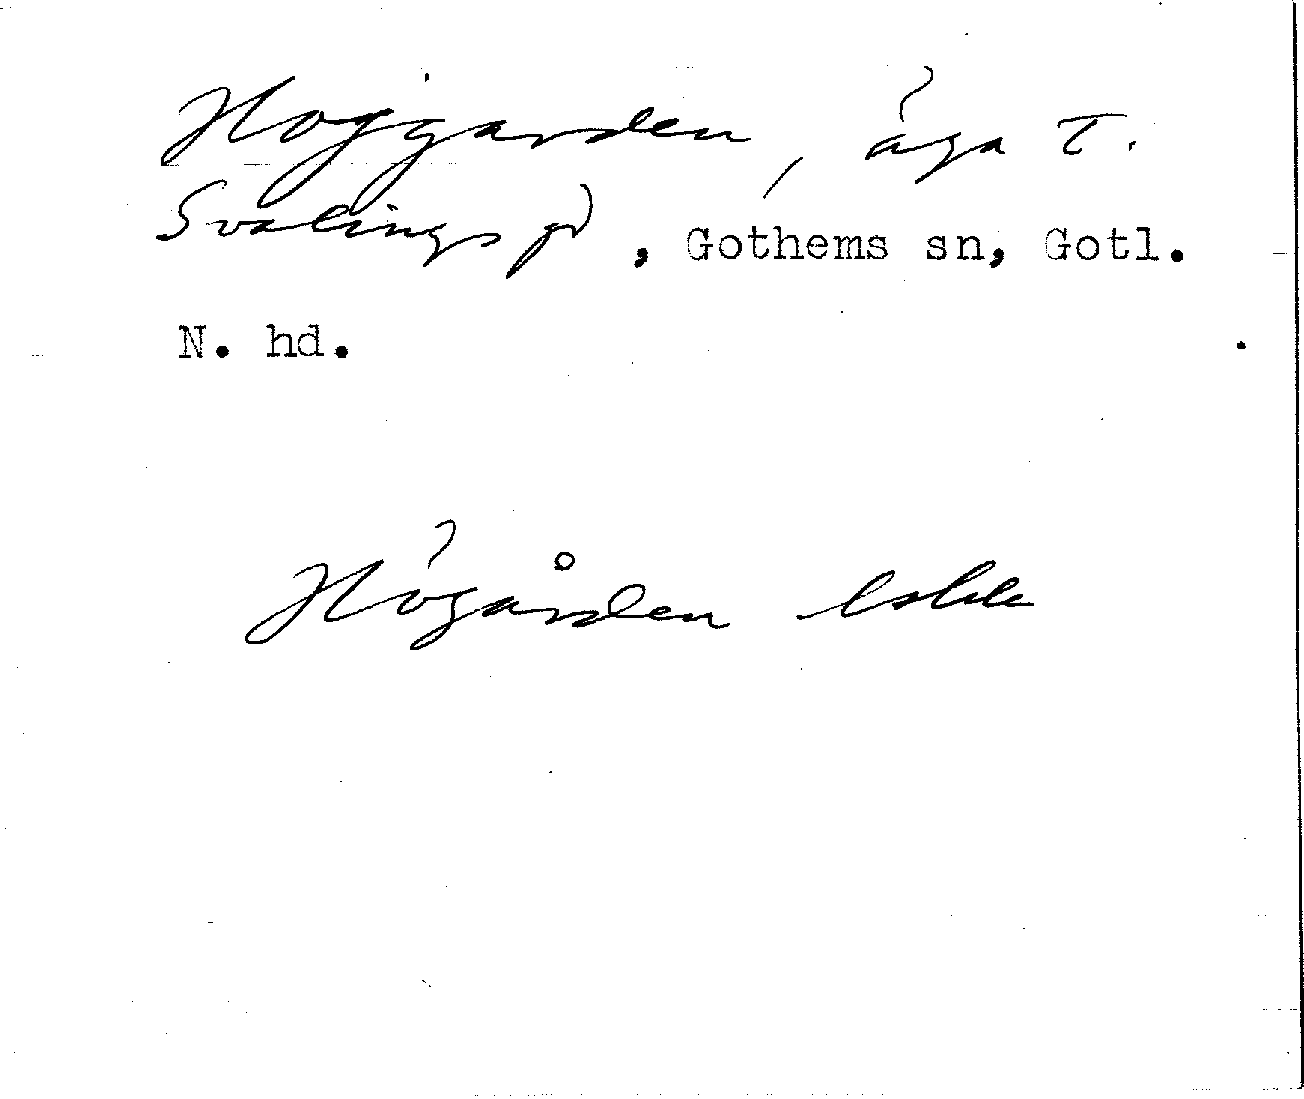 Höggården, äga t.
Svalings gd, Gothems sn, Gotl.
N. hd.
Högården